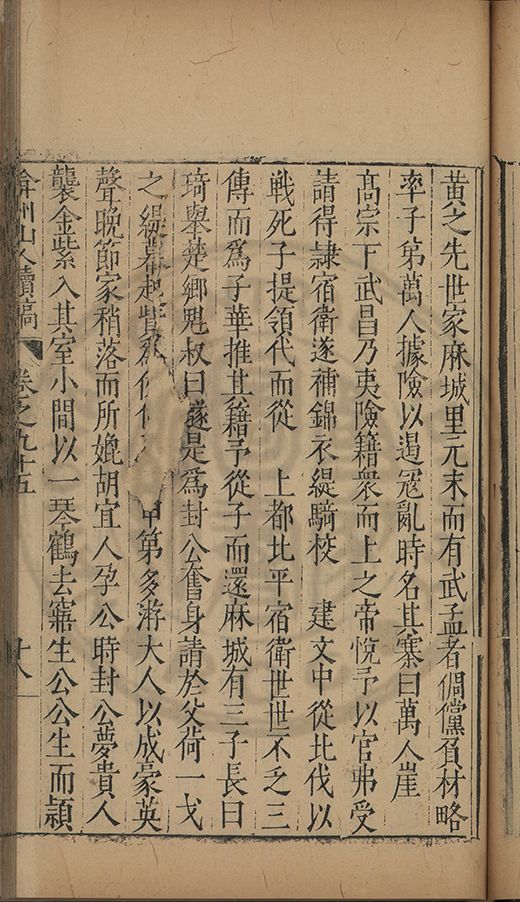 黃之先世家麻城里元末而有武孟者倜儻負材略
率子弟萬人據險以遏寇亂時名其寨曰萬人崖
高宗下武昌乃夷險籍衆而上之帝悅予以官弗受
請得隷宿衛遂補錦衣緹騎校　建文中從北伐以
戰死子提領代而從　上都北平宿衛世世不乏三
傳而爲子華推其籍予從子而還麻城有三子長曰
琦舉楚鄉魁叔曰璲是爲封公奮身請於父荷一戈
之緹幕起貲爲 甲第多游大人以成豪英
聲晚節家稍落而所媲胡宜人孕公時封公夢貴人
襲金紫入其室小間以一琴鶴去寤生公公生而頴
弇州山人續稿　卷之九十五　十八